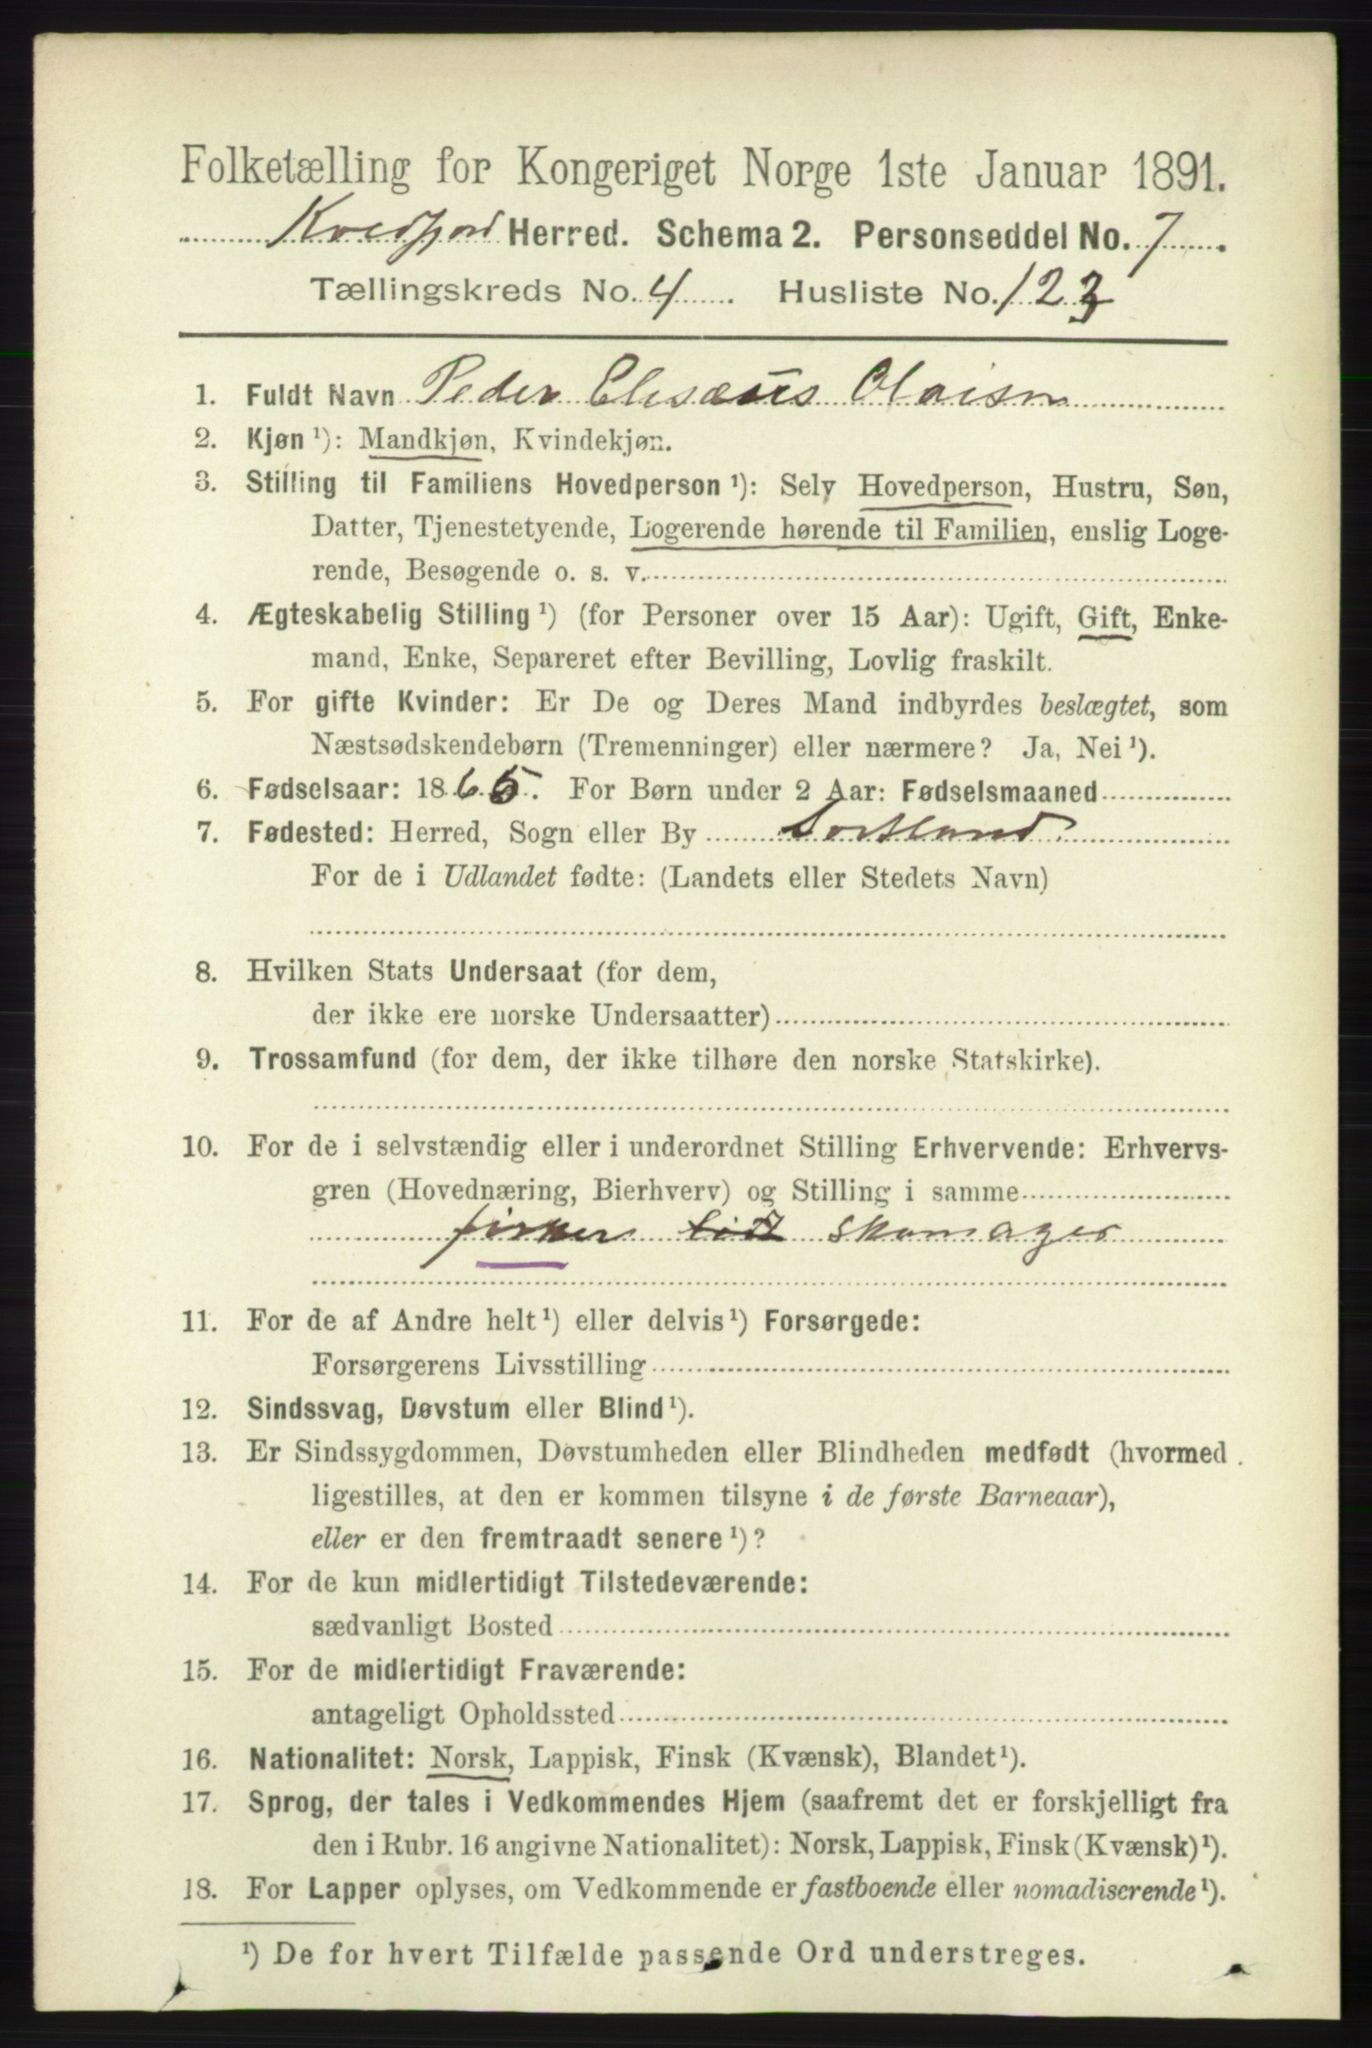 Folketælling for Kongeriget Norge 1ste Januar 1891.
Kvedfjord Herred. Schema 2. Personseddel No. 7
Tællingskreds No. 4. Husliste No. 123
1. Fuldt Navn Peder Elisæus Olaisn
2. Kjøn ¹): Mandkjøn, Kvindekjøn.
3. Stilling til Familiens Hovedperson ¹): Selv Hovedperson, Hustru, Søn,
Datter, Tjenestetyende, Logerende hørende til Familien, enslig Loge-
rende, Besøgende o. s. v.
4. Ægteskabelig Stilling ¹) (for Personer over 15 Aar): Ugift, Gift, Enke-
mand, Enke, Separeret efter Bevilling, Lovlig fraskilt.
5. For gifte Kvinder: Er De og Deres Mand indbyrdes beslægtet, som
Næstsødskendebørn (Tremenninger) eller nærmere? Ja, Nei ¹).
6. Fødselsaar: 1865. For Børn under 2 Aar: Fødselsmaaned
7. Fødested: Herred, Sogn eller By Sortland
For de i Udlandet fødte: (Landets eller Stedets Navn)
8. Hvilken Stats Undersaat (for dem,
der ikke ere norske Undersaatter)
9. Trossamfund (for dem, der ikke tilhøre den norske Statskirke).
10. For de i selvstændig eller i underordnet Stilling Erhvervende: Erhvervs-
gren (Hovednæring, Bierhverv) og Stilling i samme
fisker lidt skomager
11. For de af Andre helt ¹) eller delvis ¹) Forsørgede:
Forsørgerens Livsstilling
12. Sindssvag, Døvstum eller Blind ¹).
13. Er Sindssygdommen, Døvstumheden eller Blindheden medfødt (hvormed
ligestilles, at den er kommen tilsyne i de første Barneaar),
eller er den fremtraadt senere ¹)?
14. For de kun midlertidigt Tilstedeværende:
sædvanligt Bosted
15. For de midlertidigt Fraværende:
antageligt Opholdssted
16. Nationalitet: Norsk, Lappisk, Finsk (Kvænsk), Blandet ¹).
17. Sprog, der tales i Vedkommendes Hjem (saafremt det er forskjelligt fra
den i Rubr. 16 angivne Nationalitet): Norsk, Lappisk, Finsk (Kvænsk) ¹).
18. For Lapper oplyses, om Vedkommende er fastboende eller nomadiserende ¹).
¹) De for hvert Tilfælde passende Ord understreges.